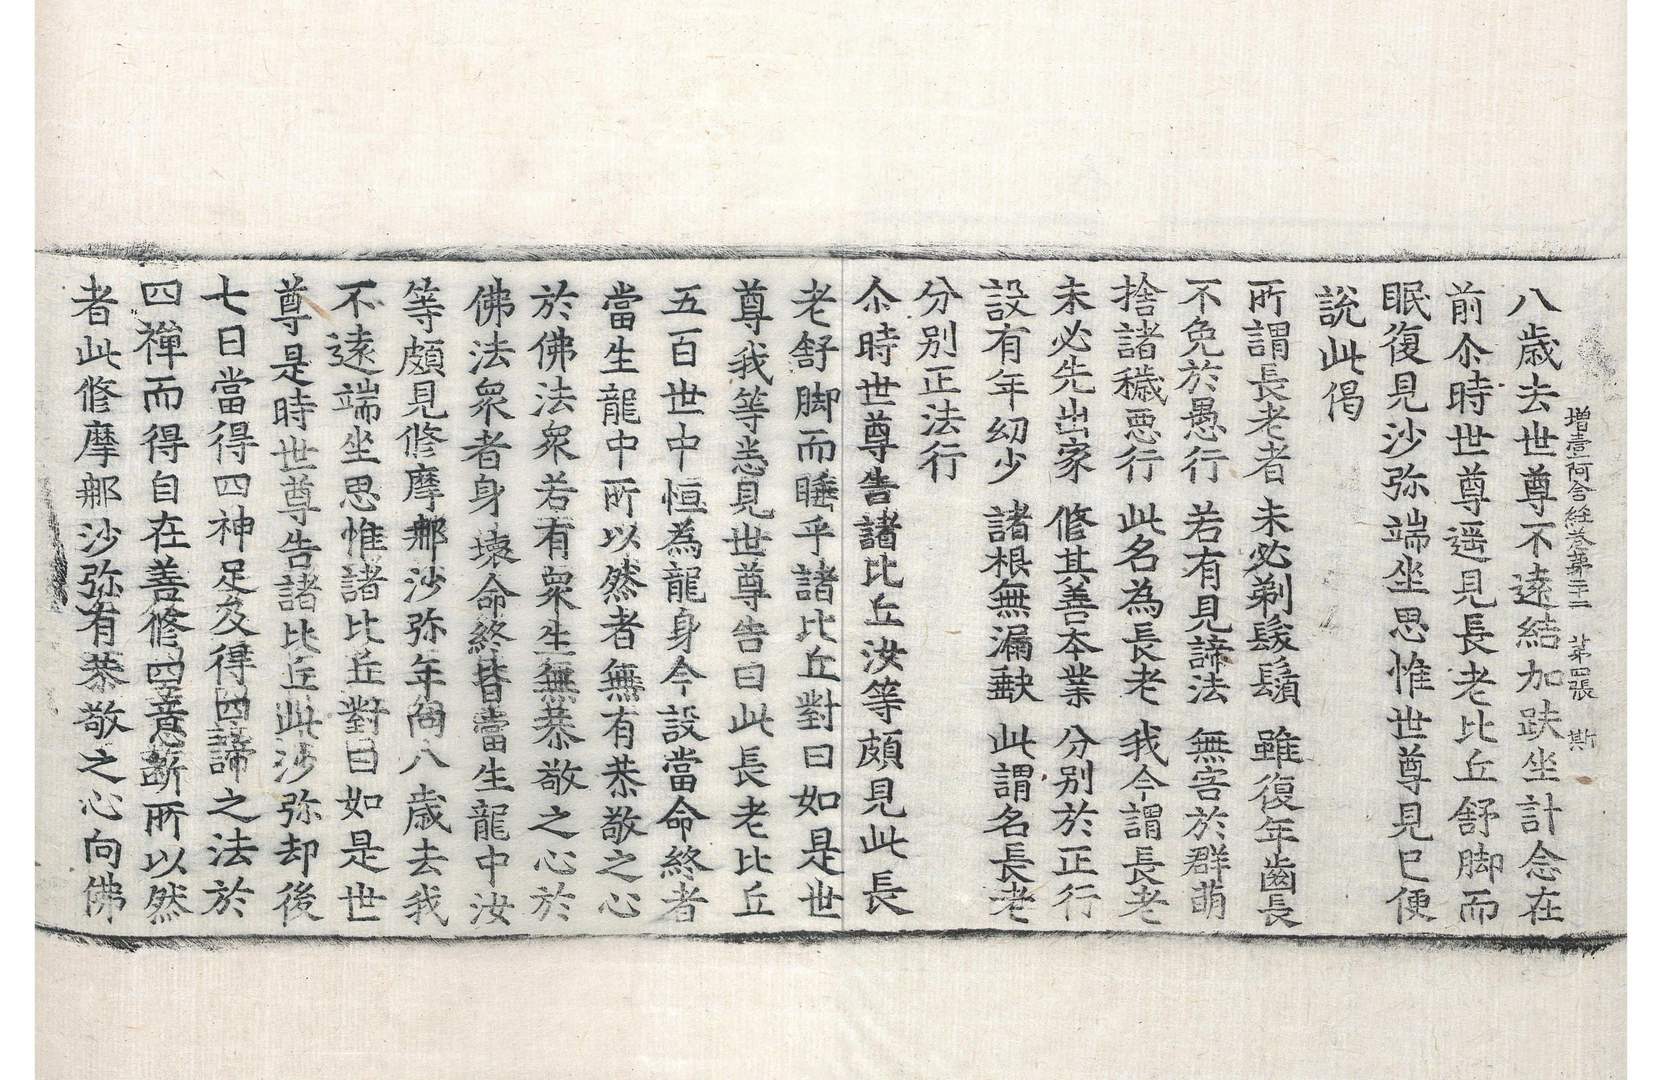 增壹阿含経卷第二十二　第四張　斯
八歳去世尊不遠結加趺坐計念在
前尒時世尊遥見長老比丘舒脚而
眠復見沙弥端坐思惟世尊見已便
說此偈
所謂長老者　未必剃髮鬚　雖復年齒長
不免於愚行　若有見諦法　無害於群萌
捨諸穢悪行　此名為長老　我今謂長老
未必先出家　修其善夲業　分別於正行
設有年幼少　諸根無漏缺　此謂名長老
分别正法行
尒時世尊告諸比丘汝等頗見此長
老舒脚而睡乎諸比丘對曰如是世
尊我等悉見世尊告曰此長老比丘
五百世中恒為龍身今設當命終者
當生龍中所以然者無有恭敬之心
於佛法衆若有衆生無恭敬之心於
佛法衆者身壞命終皆當生龍中汝
等頗見修摩那沙弥年向八歳去我
不遠端坐思惟諸比丘對曰如是世
尊是時世尊告諸比丘此沙弥却後
七日當得四神足及得四諦之法於
四禪而得自在善修四意斷所以然
者此修摩那沙弥有恭敬之心向佛